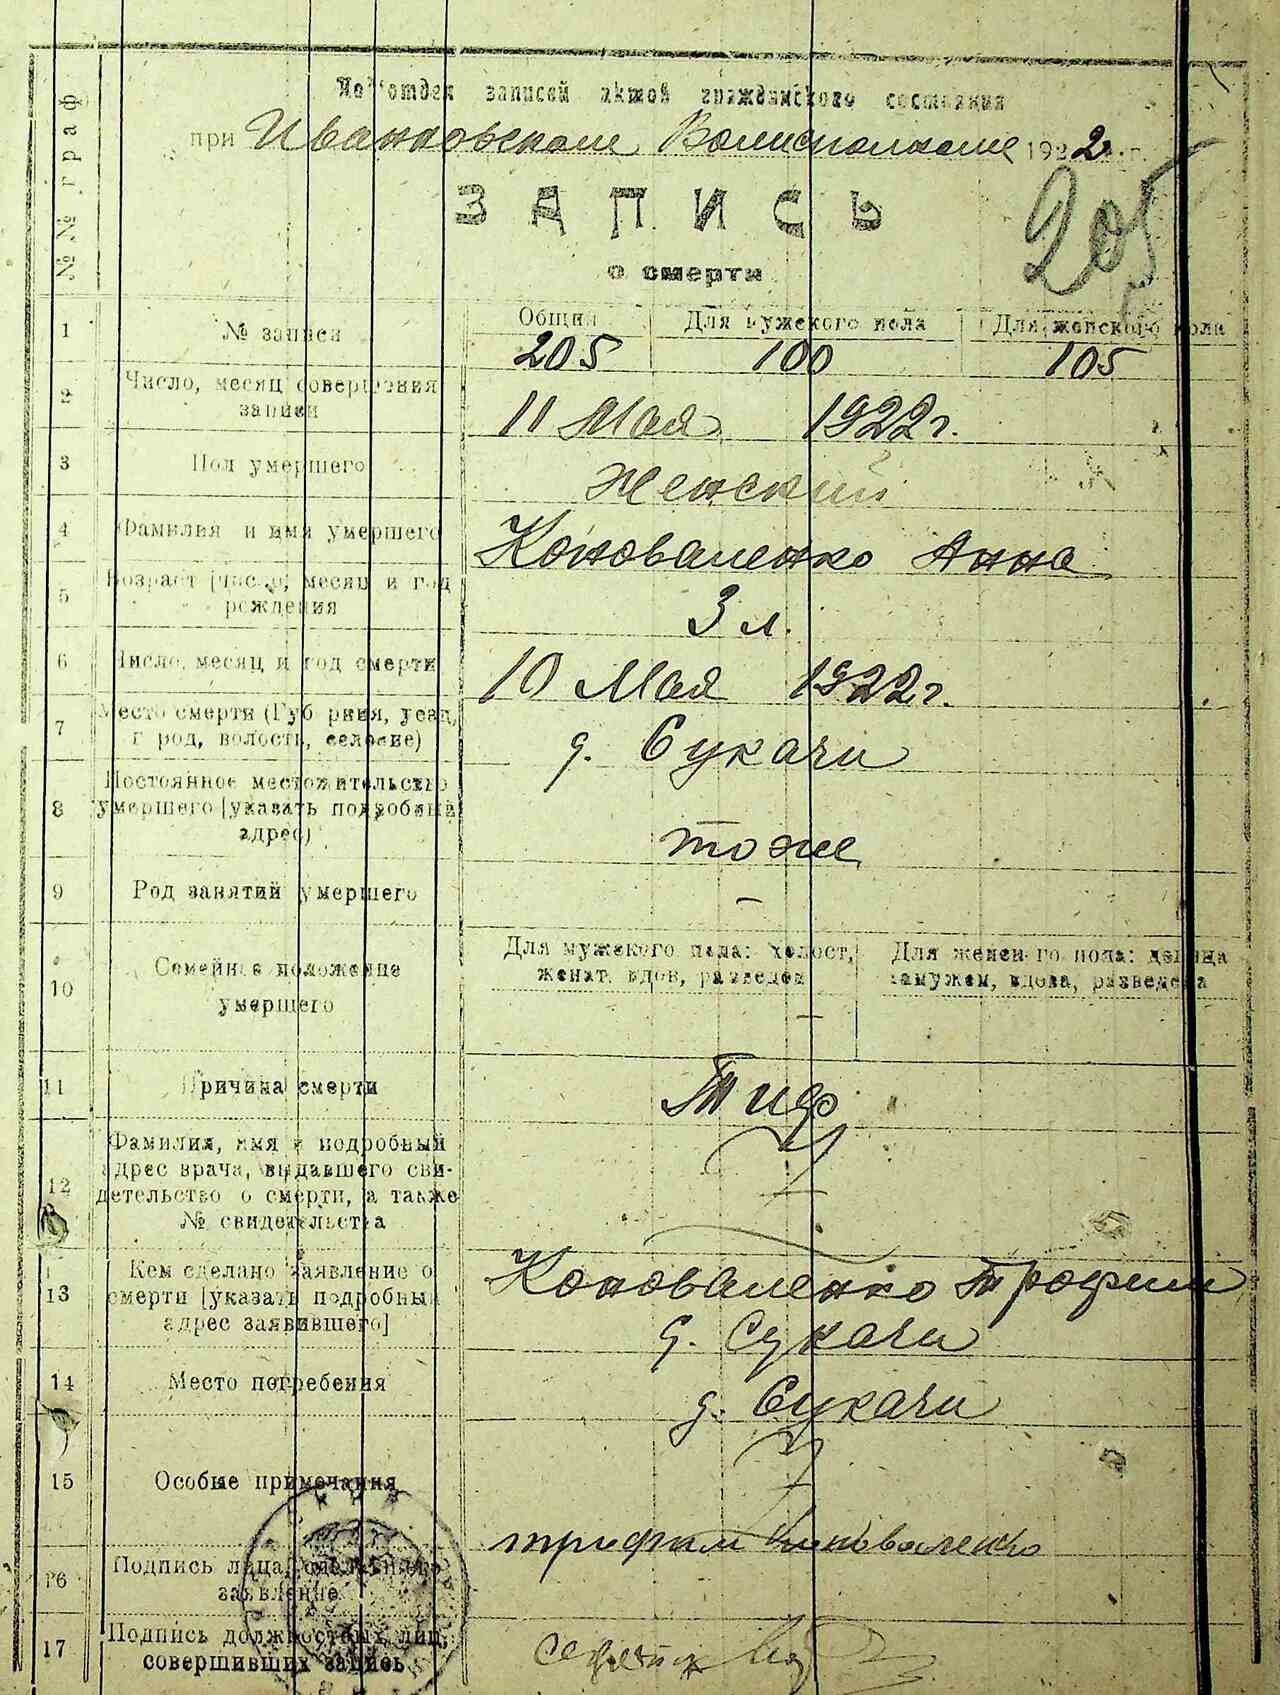 №№ граф
По'отдел записей актов гражданского состояния
при Иванковском Волисполкоме 1922 г.
205
ЗАПИСЬ
о смерти
1 № записи Общий Для мужского пола Для женского пола
205 100 105
2 Число, месяц совершения записи
11 Мая 1922 г.
3 Пол умершего Женский
4 Фамилия и имя умершего Коноваленко Анна
5 Возраст [число, месяц и год рождения
3 л.
6 Число, месяц и год смерти 10 Мая 1922 г.
7 Место смерти (Губерния, уезд, город, волость, селение)
д. Сукачи
8 Постоянное местожительство умершего [указать подробный адрес)
тоже
9 Род занятий умершего –
10 Семейное положение умершего
Для мужского пола: холост, женат, вдов, разведен
Для женского пола: девица замужем, вдова, разведена
–
11 Причина смерти Тиф
12 Фамилия, имя и подробный адрес врача, выдавшего свидетельство о смерти, а также № свидетельства
13 Кем сделано заявление о смерти [указать подробный адрес заявившего]
Коноваленко Трофим
д. Сукачи
14 Место погребения
д. Сукачи
15 Особые примечания
16 Подпись лица, сделавшего заявление
трифом Коноваленко
17 Подпись должностных лиц, совершивших запись